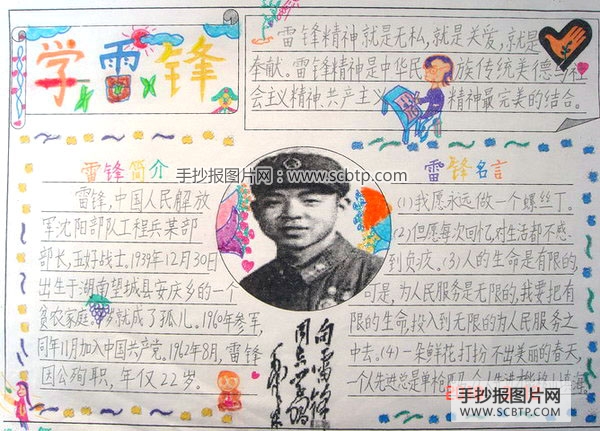 学雷锋
雷锋精神就是无私,就是关爱,就是
奉献。雷锋精神是中华民族传统美德与社
会主义精神、共产主义精神最完美的结合。
手抄报图片网:www.scbtp.com
雷锋简介
雷锋,中国人民解放
军沈阳部队工程兵某部
部长,五好战士。1939年12月30日
出生于湖南望城县安庆乡的一个
贫农家庭。岁就成了孤儿。1960年参军,
同年11月加入中国共产党。1962年8月,雷锋
因公殉职,年仅22岁。
向雷锋
同志学习
毛泽东
雷锋名言
(1)我愿永远做一个螺丝丁。
(2)但愿每次回忆,对生活都不感
到负疚。(3)人的生命是有限的,
可是,为人民服务是无限的,我要把有
限的生命,投入到无限的为人民服务之
中去。(4)一朵鲜花打扮不出美丽的春天,
一个人先进总是单枪
手抄报图片网
WWW.SCBTP.COM